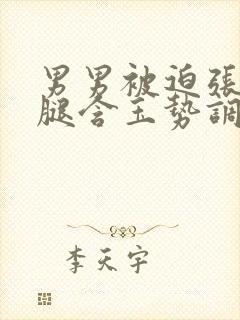 男男被迫張
腿含玉勢調
李天宇